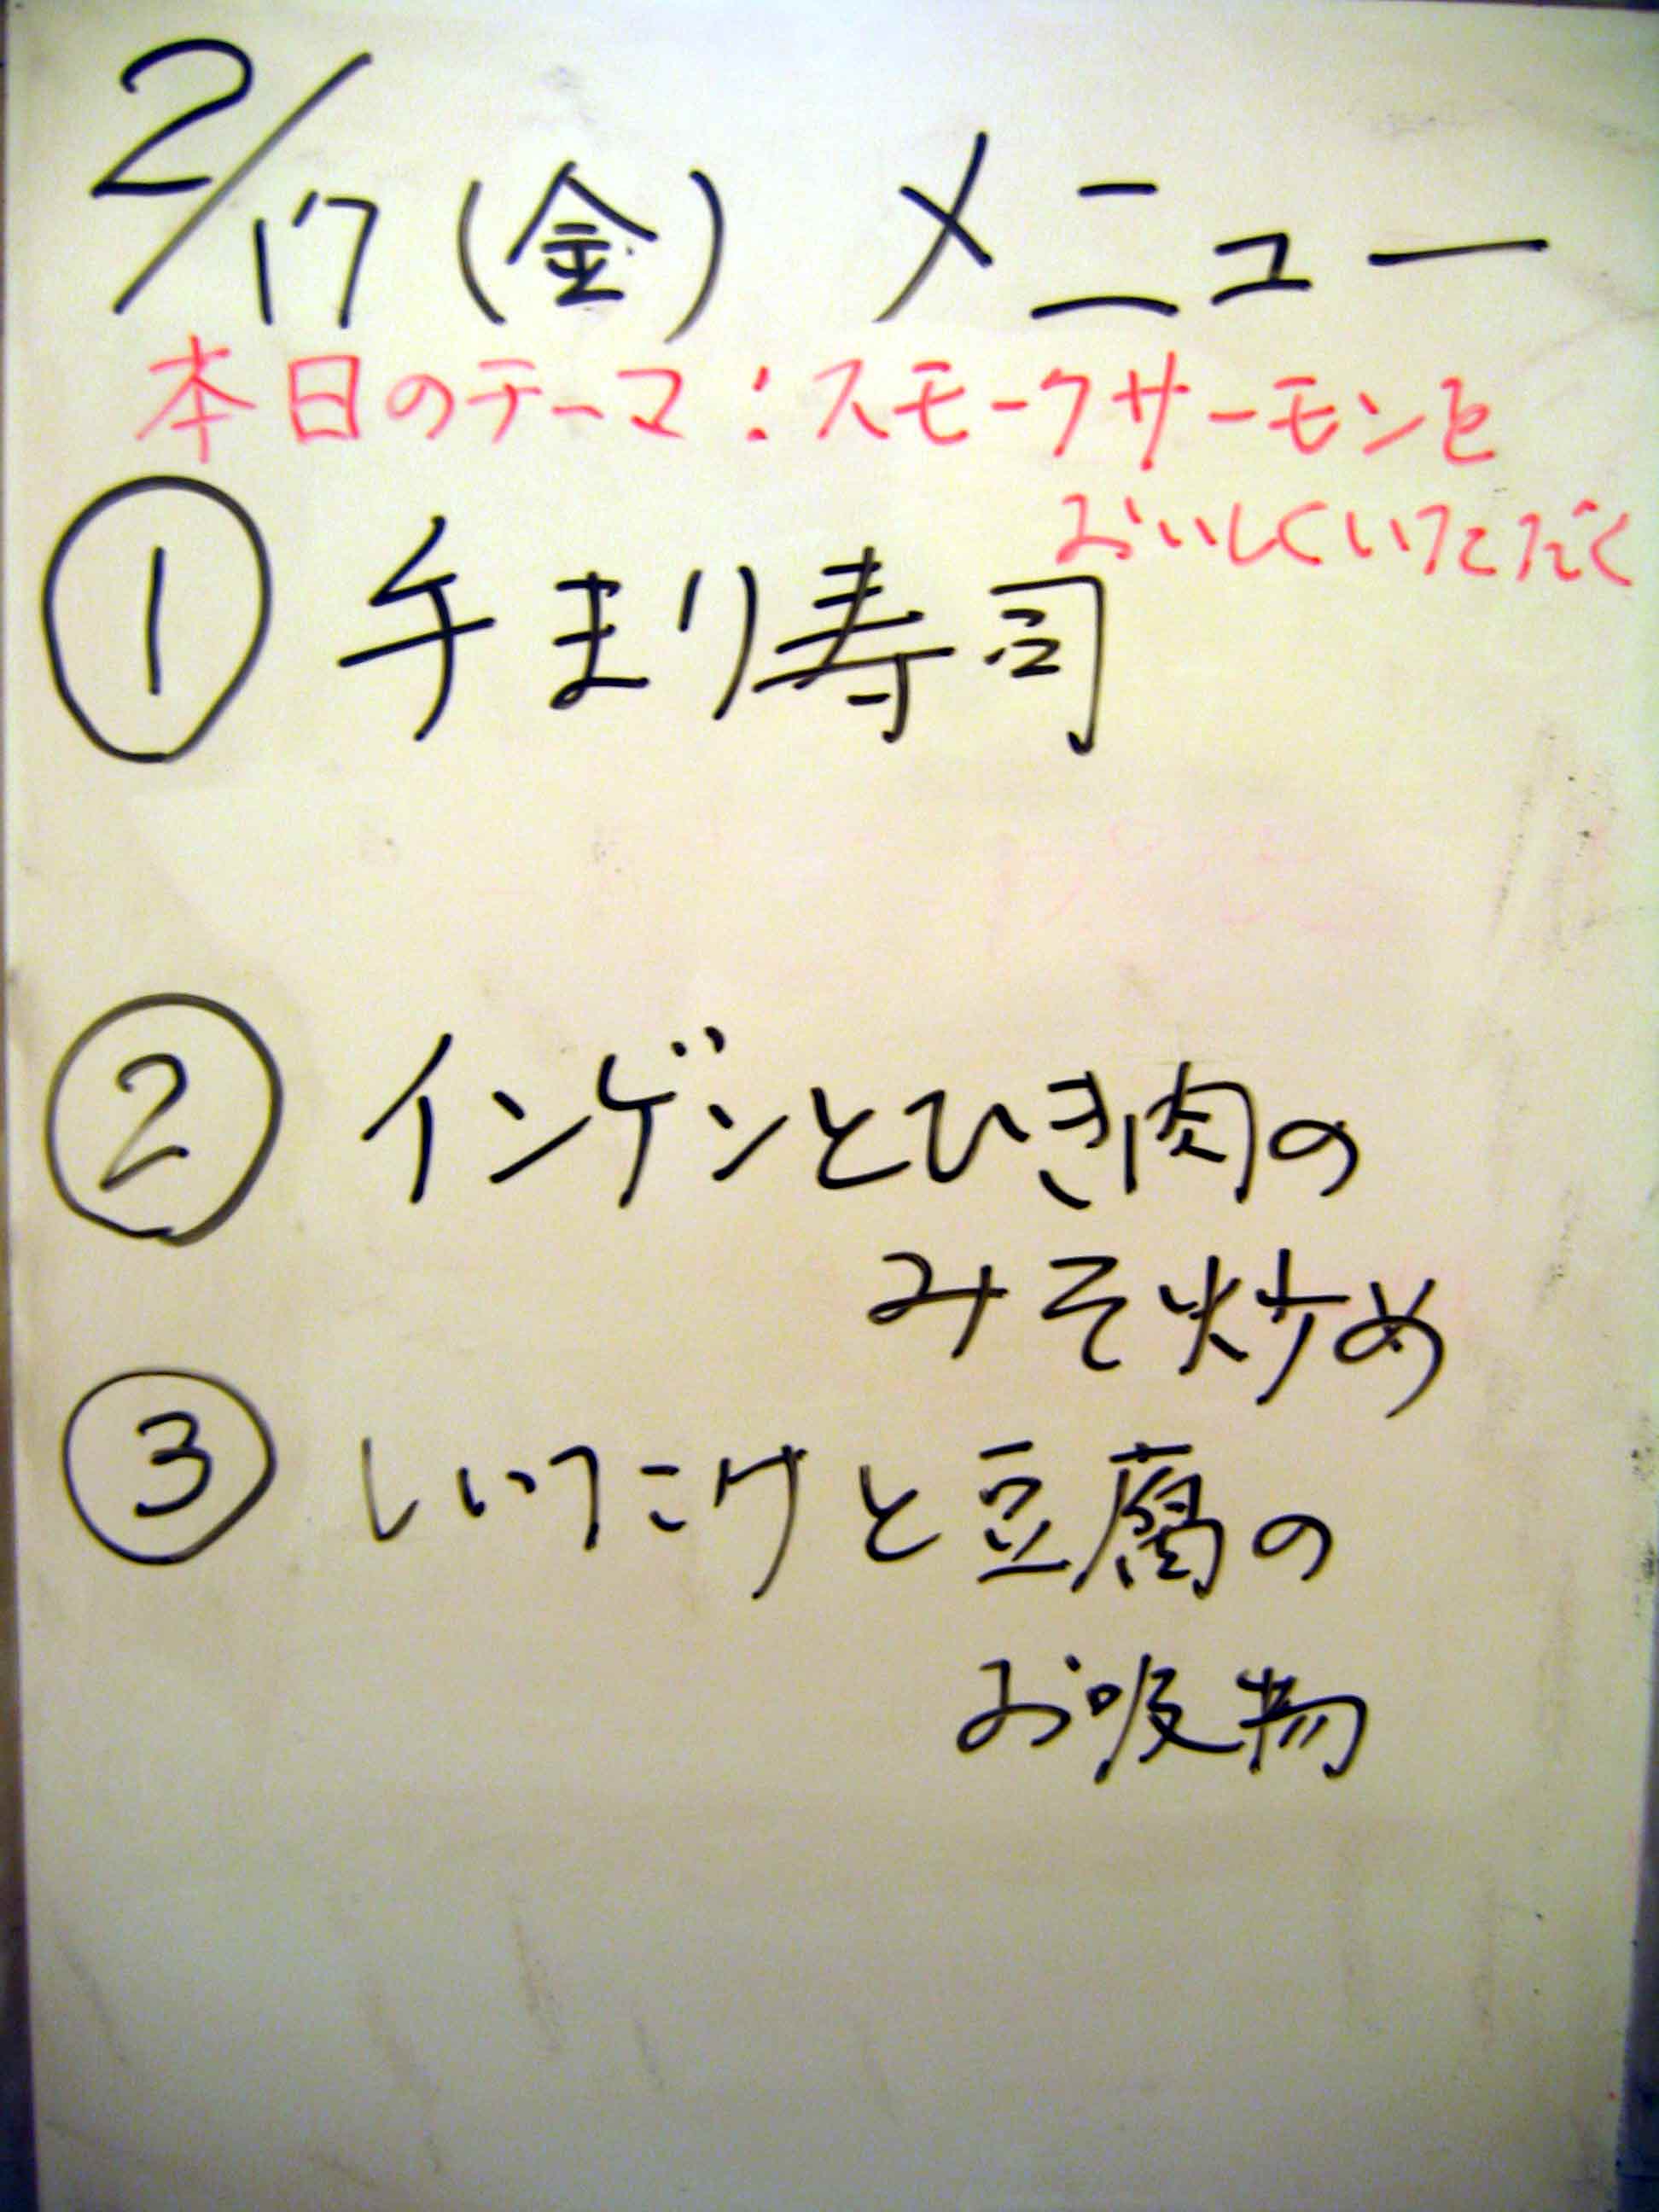 2/17(金) メニュー
本日のテーマ:スモークサーモンを
おいしくいただく
① 手まり寿司
② インゲンとひき肉の
みそ炒め
③ しいたけと豆腐の
お吸物